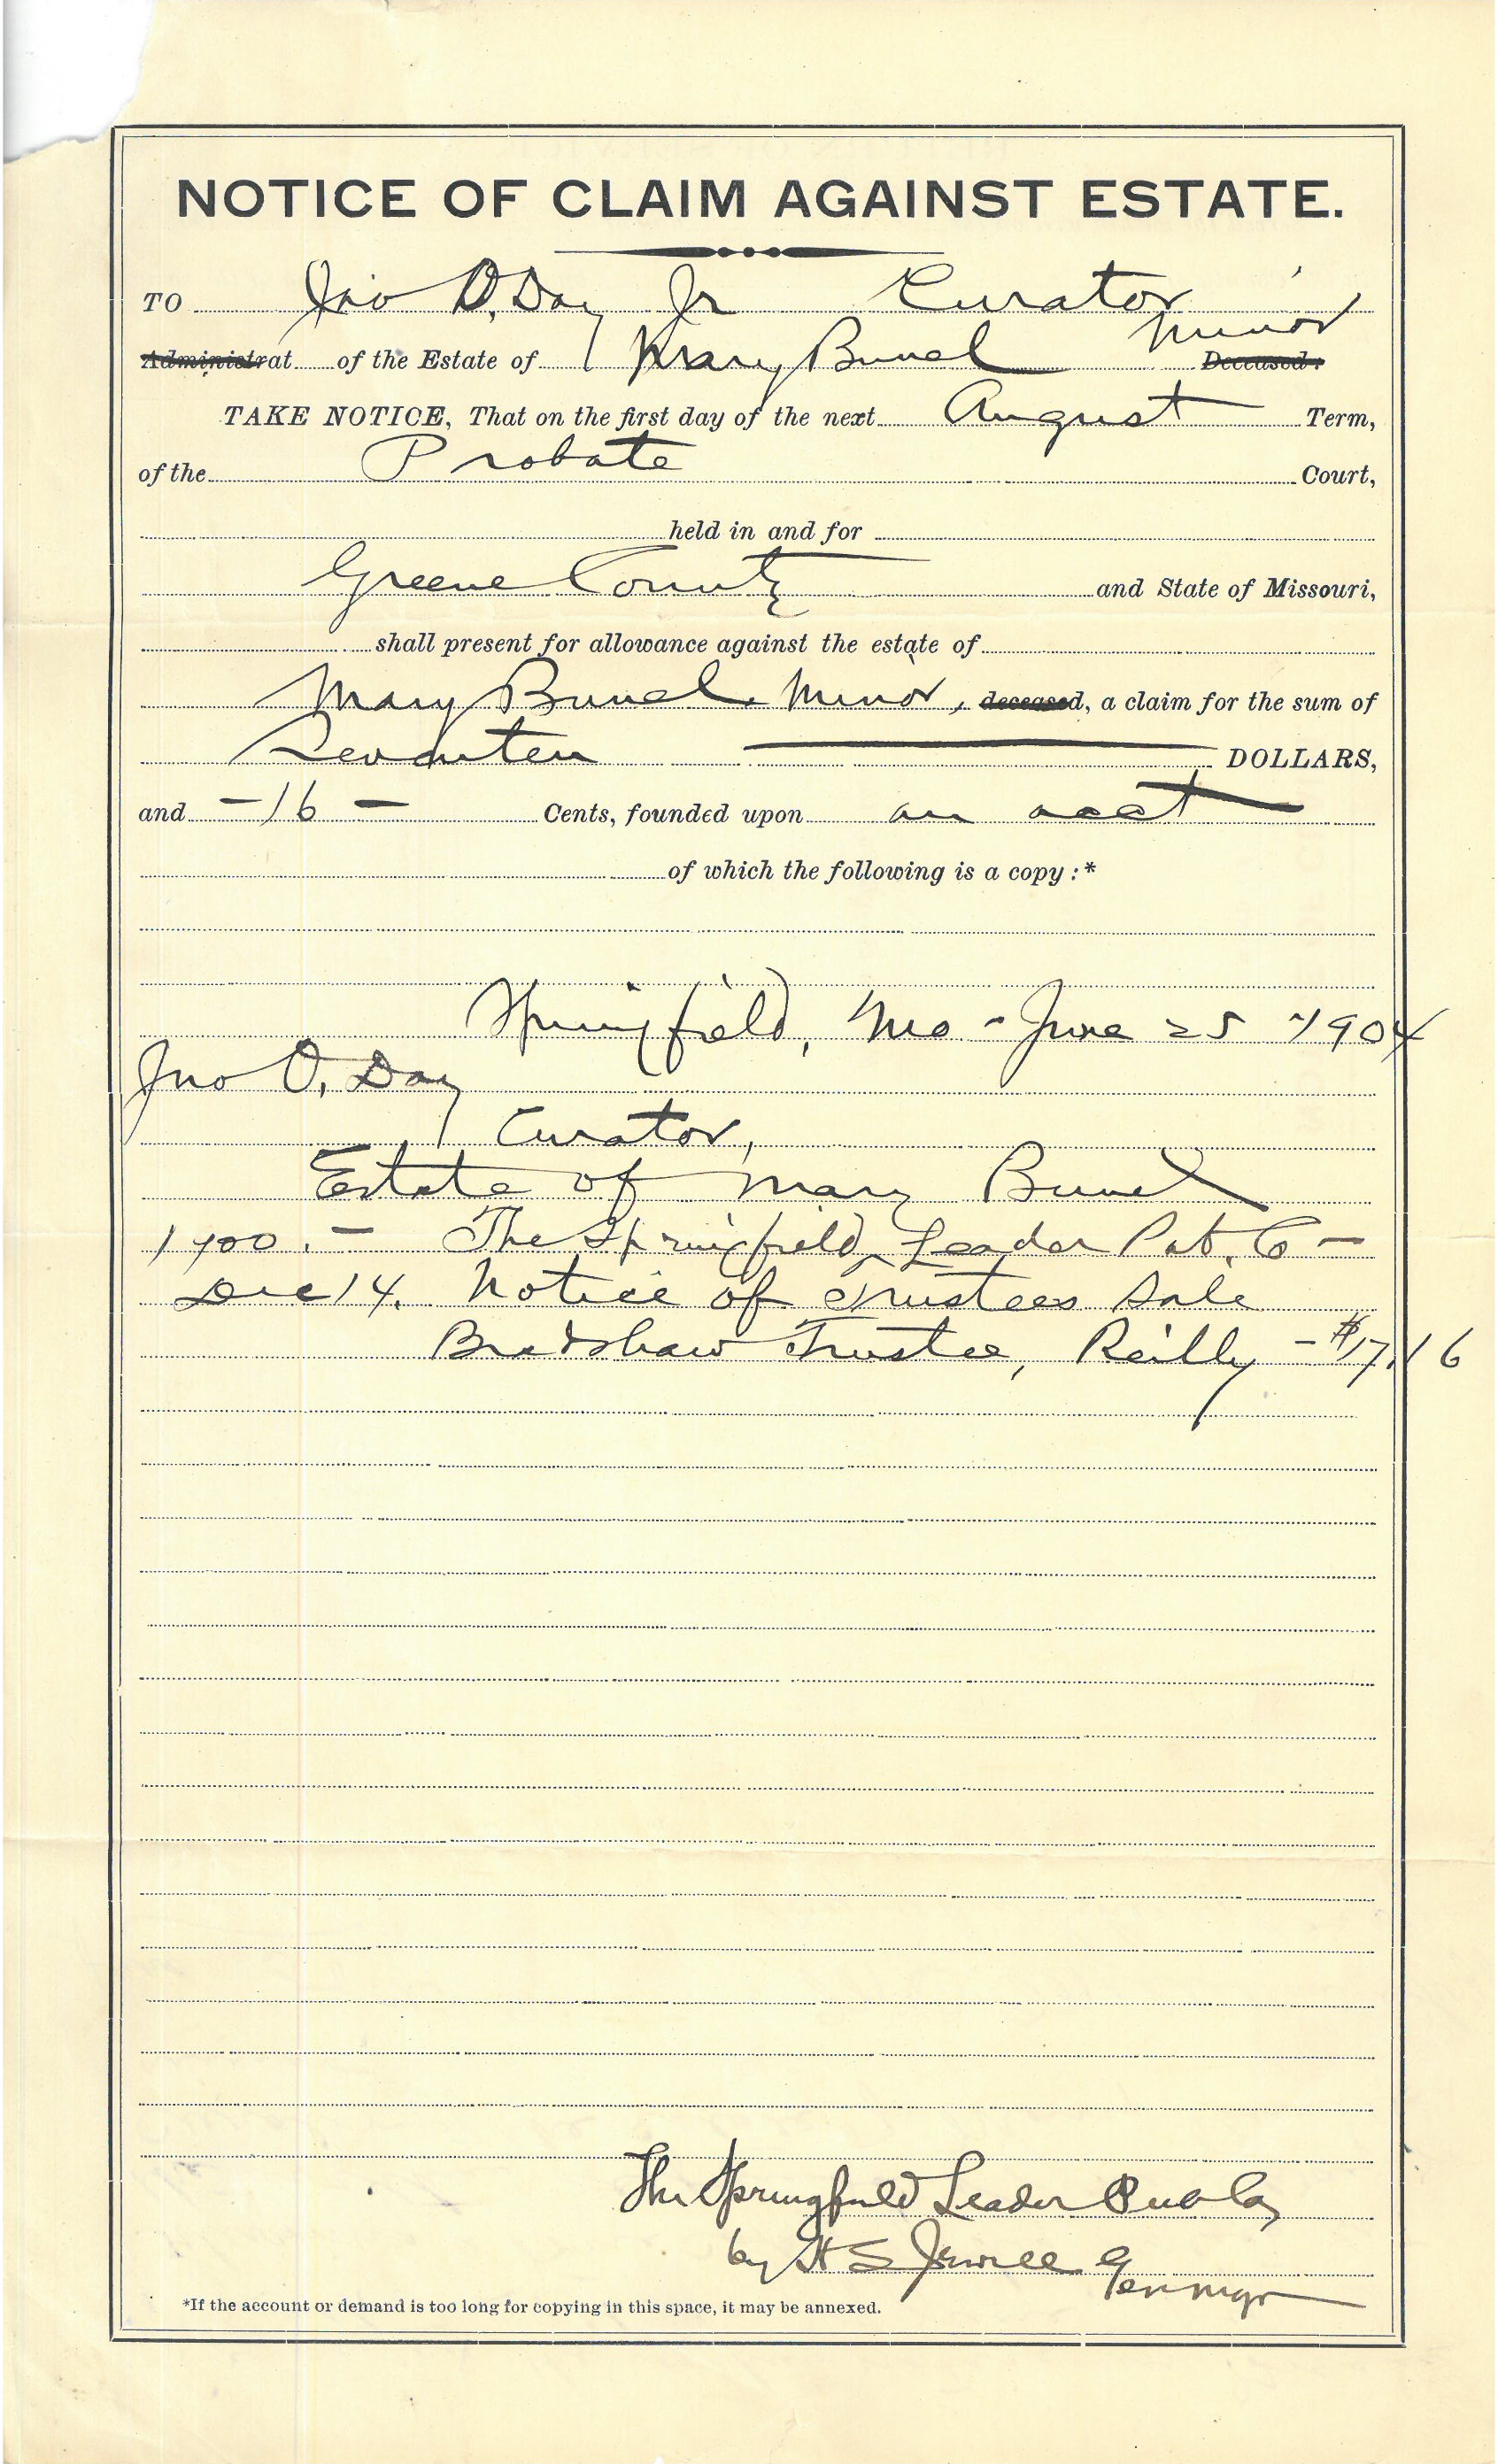 NOTICE OF CLAIM AGAINST ESTATE.
TO Jno O. Day Jr Curator
Administrat of the Estate of Mary Bunel Minor Deceased:
TAKE NOTICE, That on the first day of the next August Term,
of the Probate Court,
held in and for
Greene County and State of Missouri,
shall present for allowance against the estate of
Mary Bunel Minor, deceased, a claim for the sum of
Seventeen DOLLARS,
and -16- Cents, founded upon an acct
of which the following is a copy:*
Springfield, Mo - June 25 1904
Jno O. Day
Curator,
Estate of Mary Bunel
1900. - The Springfield Leader Pub. Co -
Dec 14. Notice of Trustees Sale
Bradshaw Trustee, Reilly - $17.16
The Springfield Leader Pub Co
by H S Jewell Gen mgr
*If the account or demand is too long for copying in this space, it may be annexed.